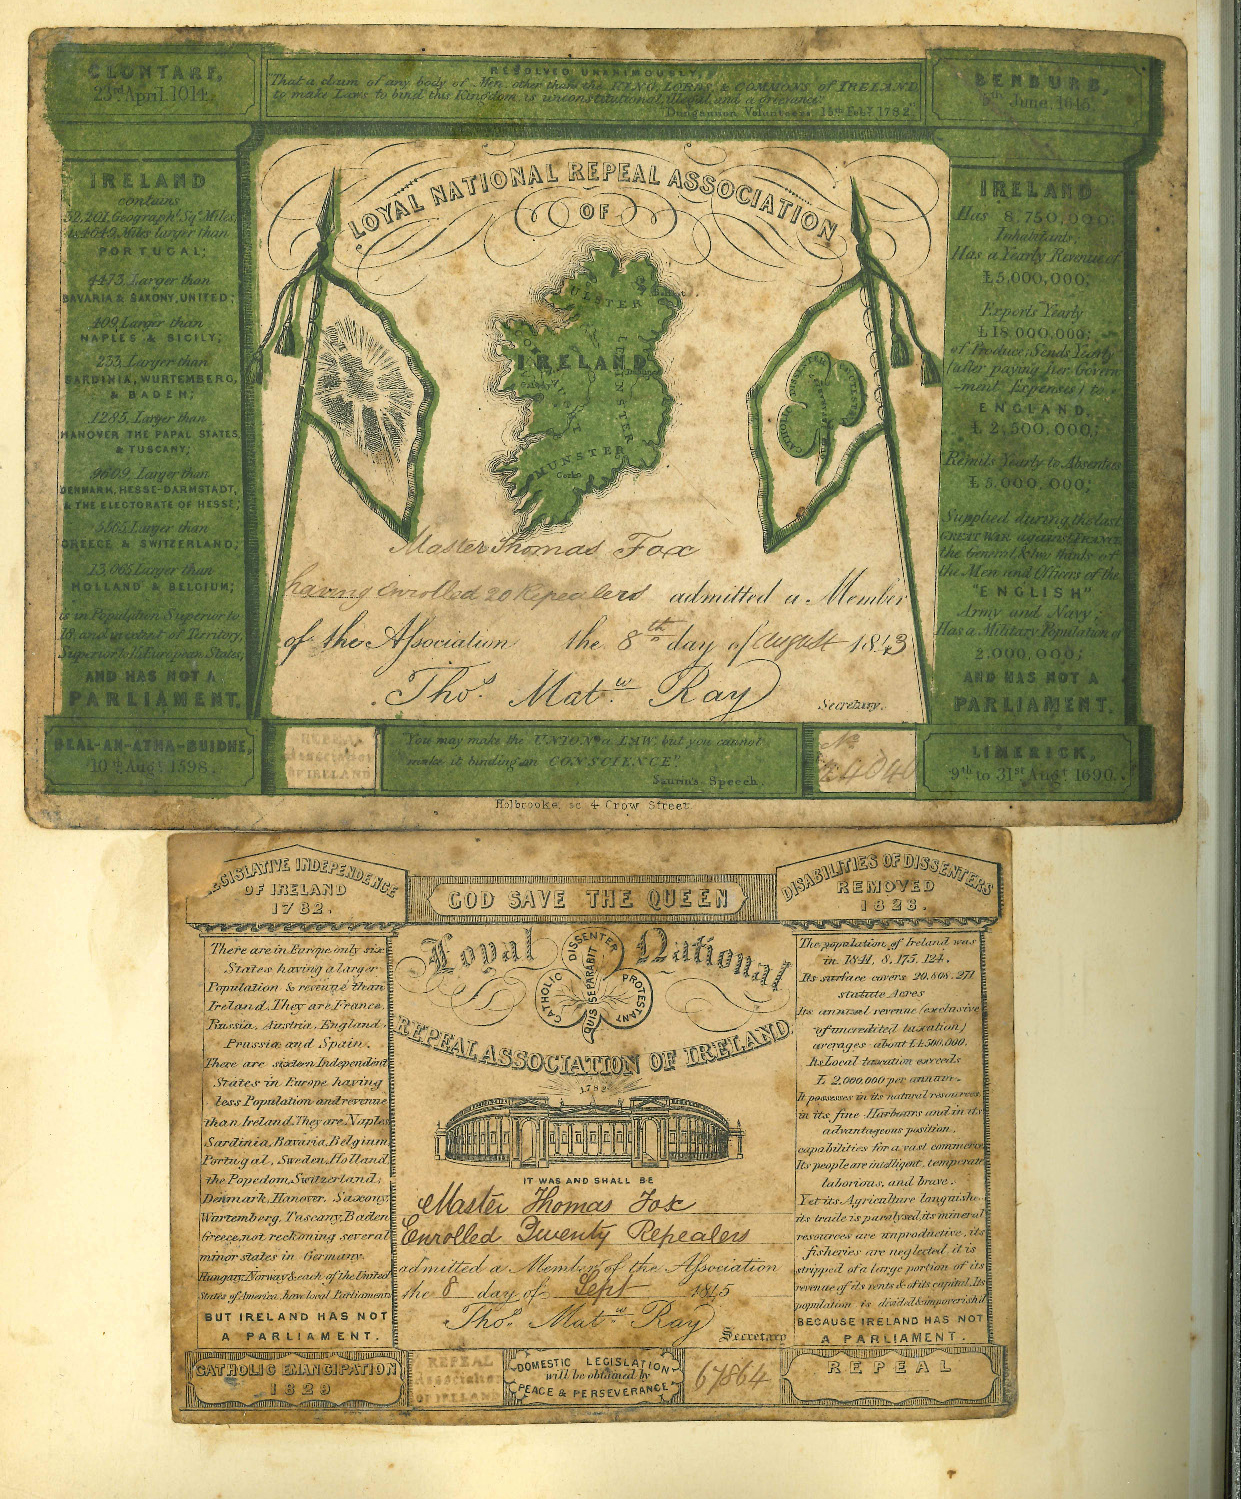 CLONTARF,
23rd April, 1014.
RESOLVED UNANIMOUSLY,
"That a claim of any body of Men, other than the KING, LORDS, & COMMONS of IRELAND,
to make Laws to bind this Kingdom is unconstitutional, illegal, and a grievance"
Dungannon Volunteers, 15th Feby. 1782.
BENBURB,
5th June, 1646.
IRELAND
contains
32,201, Geographl. Sqr. Miles,
is 4649, Miles larger than
PORTUGAL;
4473, Larger than
BAVARIA & SAXONY, UNITED;
409, Larger than
NAPLES & SICILY;
253, Larger than
SARDINIA, WURTEMBERG,
& BADEN;
1285, Larger than
HANOVER THE PAPAL STATES,
& TUSCANY;
9609, Larger than
DENMARK, HESSE-DARMSTADT,
& THE ELECTORATE OF HESSE;
5565, Larger than
GREECE & SWITZERLAND;
13,065 Larger than
HOLLAND & BELGIUM;
is in Population Superior to
18, and in extent of Territory,
Superior to 15 European States,
AND HAS NOT A
PARLIAMENT.
LOYAL NATIONAL REPEAL ASSOCIATION
OF
IRELAND
ULSTER
LEINSTER
MUNSTER
Cork
CATHOLIC
DISSENTER
PROTESTANT
Master Thomas Fox
having enrolled 20 Repealers admitted a Member
of the Association the 8th day of August 1843
Thos. Matw. Ray
Secretary.
IRELAND
Has 8,750,000;
Inhabitants;
Has a Yearly Revenue of
£5,000,000;
Exports Yearly
£18,000,000;
of Produce; Sends Yearly
(after paying her Govern
-ment Expenses) to
ENGLAND,
£2,500,000;
Remits Yearly to Absentees
£5,000,000;
Supplied during the last
GREAT WAR against FRANCE
the General, & two thirds of
the Men and Officers of the
"ENGLISH"
Army and Navy;
Has a Military Population of
2,000,000;
AND HAS NOT A
PARLIAMENT.
BEAL-AN-ATHA-BUIDHE,
10th Augt. 1598.
REPEAL
Association
OF IRELAND
"You may make the UNION a LAW, but you cannot
make it binding on CONSCIENCE"
Saurin's Speech.
No.
LIMERICK,
9th to 31st Augt. 1690.
Holbrooke, sc 4 Crow Street
LEGISLATIVE INDEPENDENCE
OF IRELAND
1782.
GOD SAVE THE QUEEN
DISABILITIES OF DISSENTERS
REMOVED
1828.
There are in Europe only six
States having a larger
Population & revenue than
Ireland. They are France,
Russia, Austria, England,
Prussia and Spain.
There are sixteen Independent
States in Europe having
less Population and revenue
than Ireland. They are Naples
Sardinia, Bavaria, Belgium,
Portugal, Sweden, Holland,
the Popedom, Switzerland,
Denmark, Hanover, Saxony,
Wurtemberg, Tuscany, Baden
Greece, not reckoning several
minor states in Germany.
Hungary, Norway & each of the United
States of America, have local Parliaments
BUT IRELAND HAS NOT
A PARLIAMENT.
Loyal National
CATHOLIC
DISSENTER
PROTESTANT
QUIS SEPARABIT
REPEAL ASSOCIATION OF IRELAND
1782
IT WAS AND SHALL BE
Master Thomas Fox
Enrolled Twenty Repealers
admitted a Member of the Association
the 8 day of Sept 1845
Thos. Matw. Ray
Secretary
The population of Ireland was
in 1841, 8,175,124.
Its surface covers 20,808,271
statute Acres
Its annual revenue (exclusive
of uncredited taxation)
averages about £4,500,000.
Its Local taxation exceeds
£2,000,000 per annum.
It possesses in its natural resources,
in its fine Harbours and in its
advantageous position,
capabilities for a vast commerce
Its people are intelligent, temperate
laborious, and brave.
Yet its Agriculture languishes
its trade is paralysed, its mineral
resources are unproductive, its
fisheries are neglected, it is
stripped of a large portion of its
revenue of its rents & of its capital. Its
population is divided & impoverish'd
BECAUSE IRELAND HAS NOT
A PARLIAMENT.
CATHOLIC EMANCIPATION
1829
REPEAL
Association
OF IRELAND
DOMESTIC LEGISLATION
will be obtained by
PEACE & PERSEVERANCE
67864
REPEAL